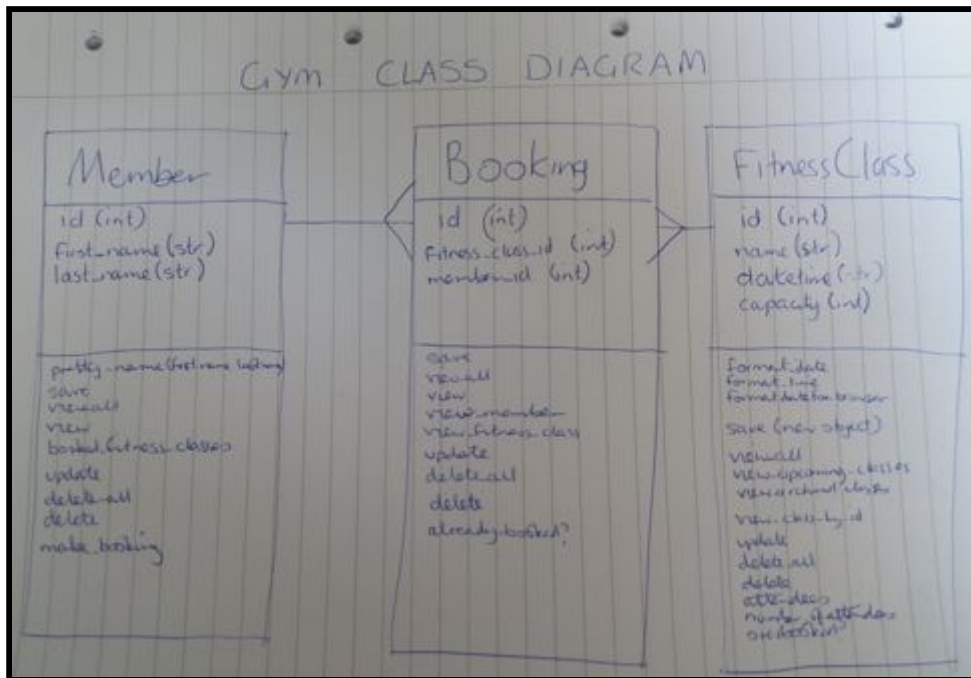 GYM CLASS DIAGRAM
Member
id (int)
first_name (str)
last_name (str)
pretty_name (first name lastname)
save
view all
view
booked_fitness_classes
update
delete_all
delete
make_booking
Booking
id (int)
fitness_class_id (int)
member_id (int)
save
view all
view
view_member
view_fitness_class
update
delete_all
delete
already_booked?
FitnessClass
id (int)
name (str)
datetime (str)
capacity (int)
format_date
format_time
format date for browser
save (new object)
view all
view_upcoming_classes
view_archived_classes
view_class_by_id
update
delete_all
delete
attendees
number_of_attendees
overbooked?